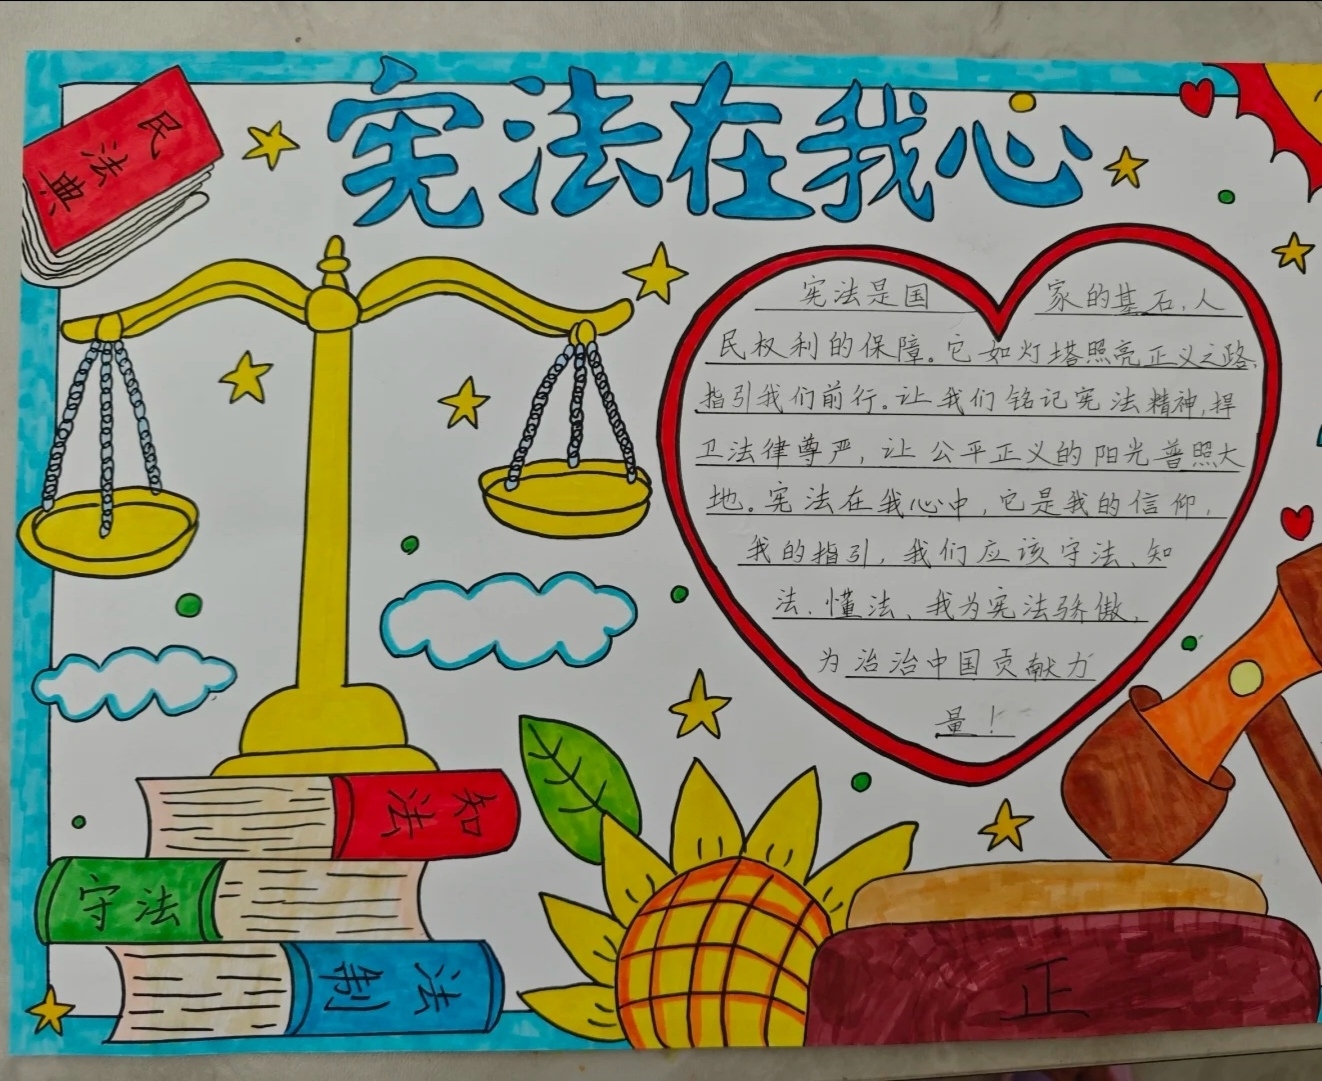 宪法在我心
民法典
宪法是国家的基石,人
民权利的保障。它如灯塔照亮正义之路,
指引我们前行。让我们铭记宪法精神,捍
卫法律尊严,让公平正义的阳光普照大
地。宪法在我心中,它是我的信仰,
我的指引,我们应该守法、知
法、懂法、我为宪法骄傲,
为治治中国贡献力
量!
知法
守法
法制
正